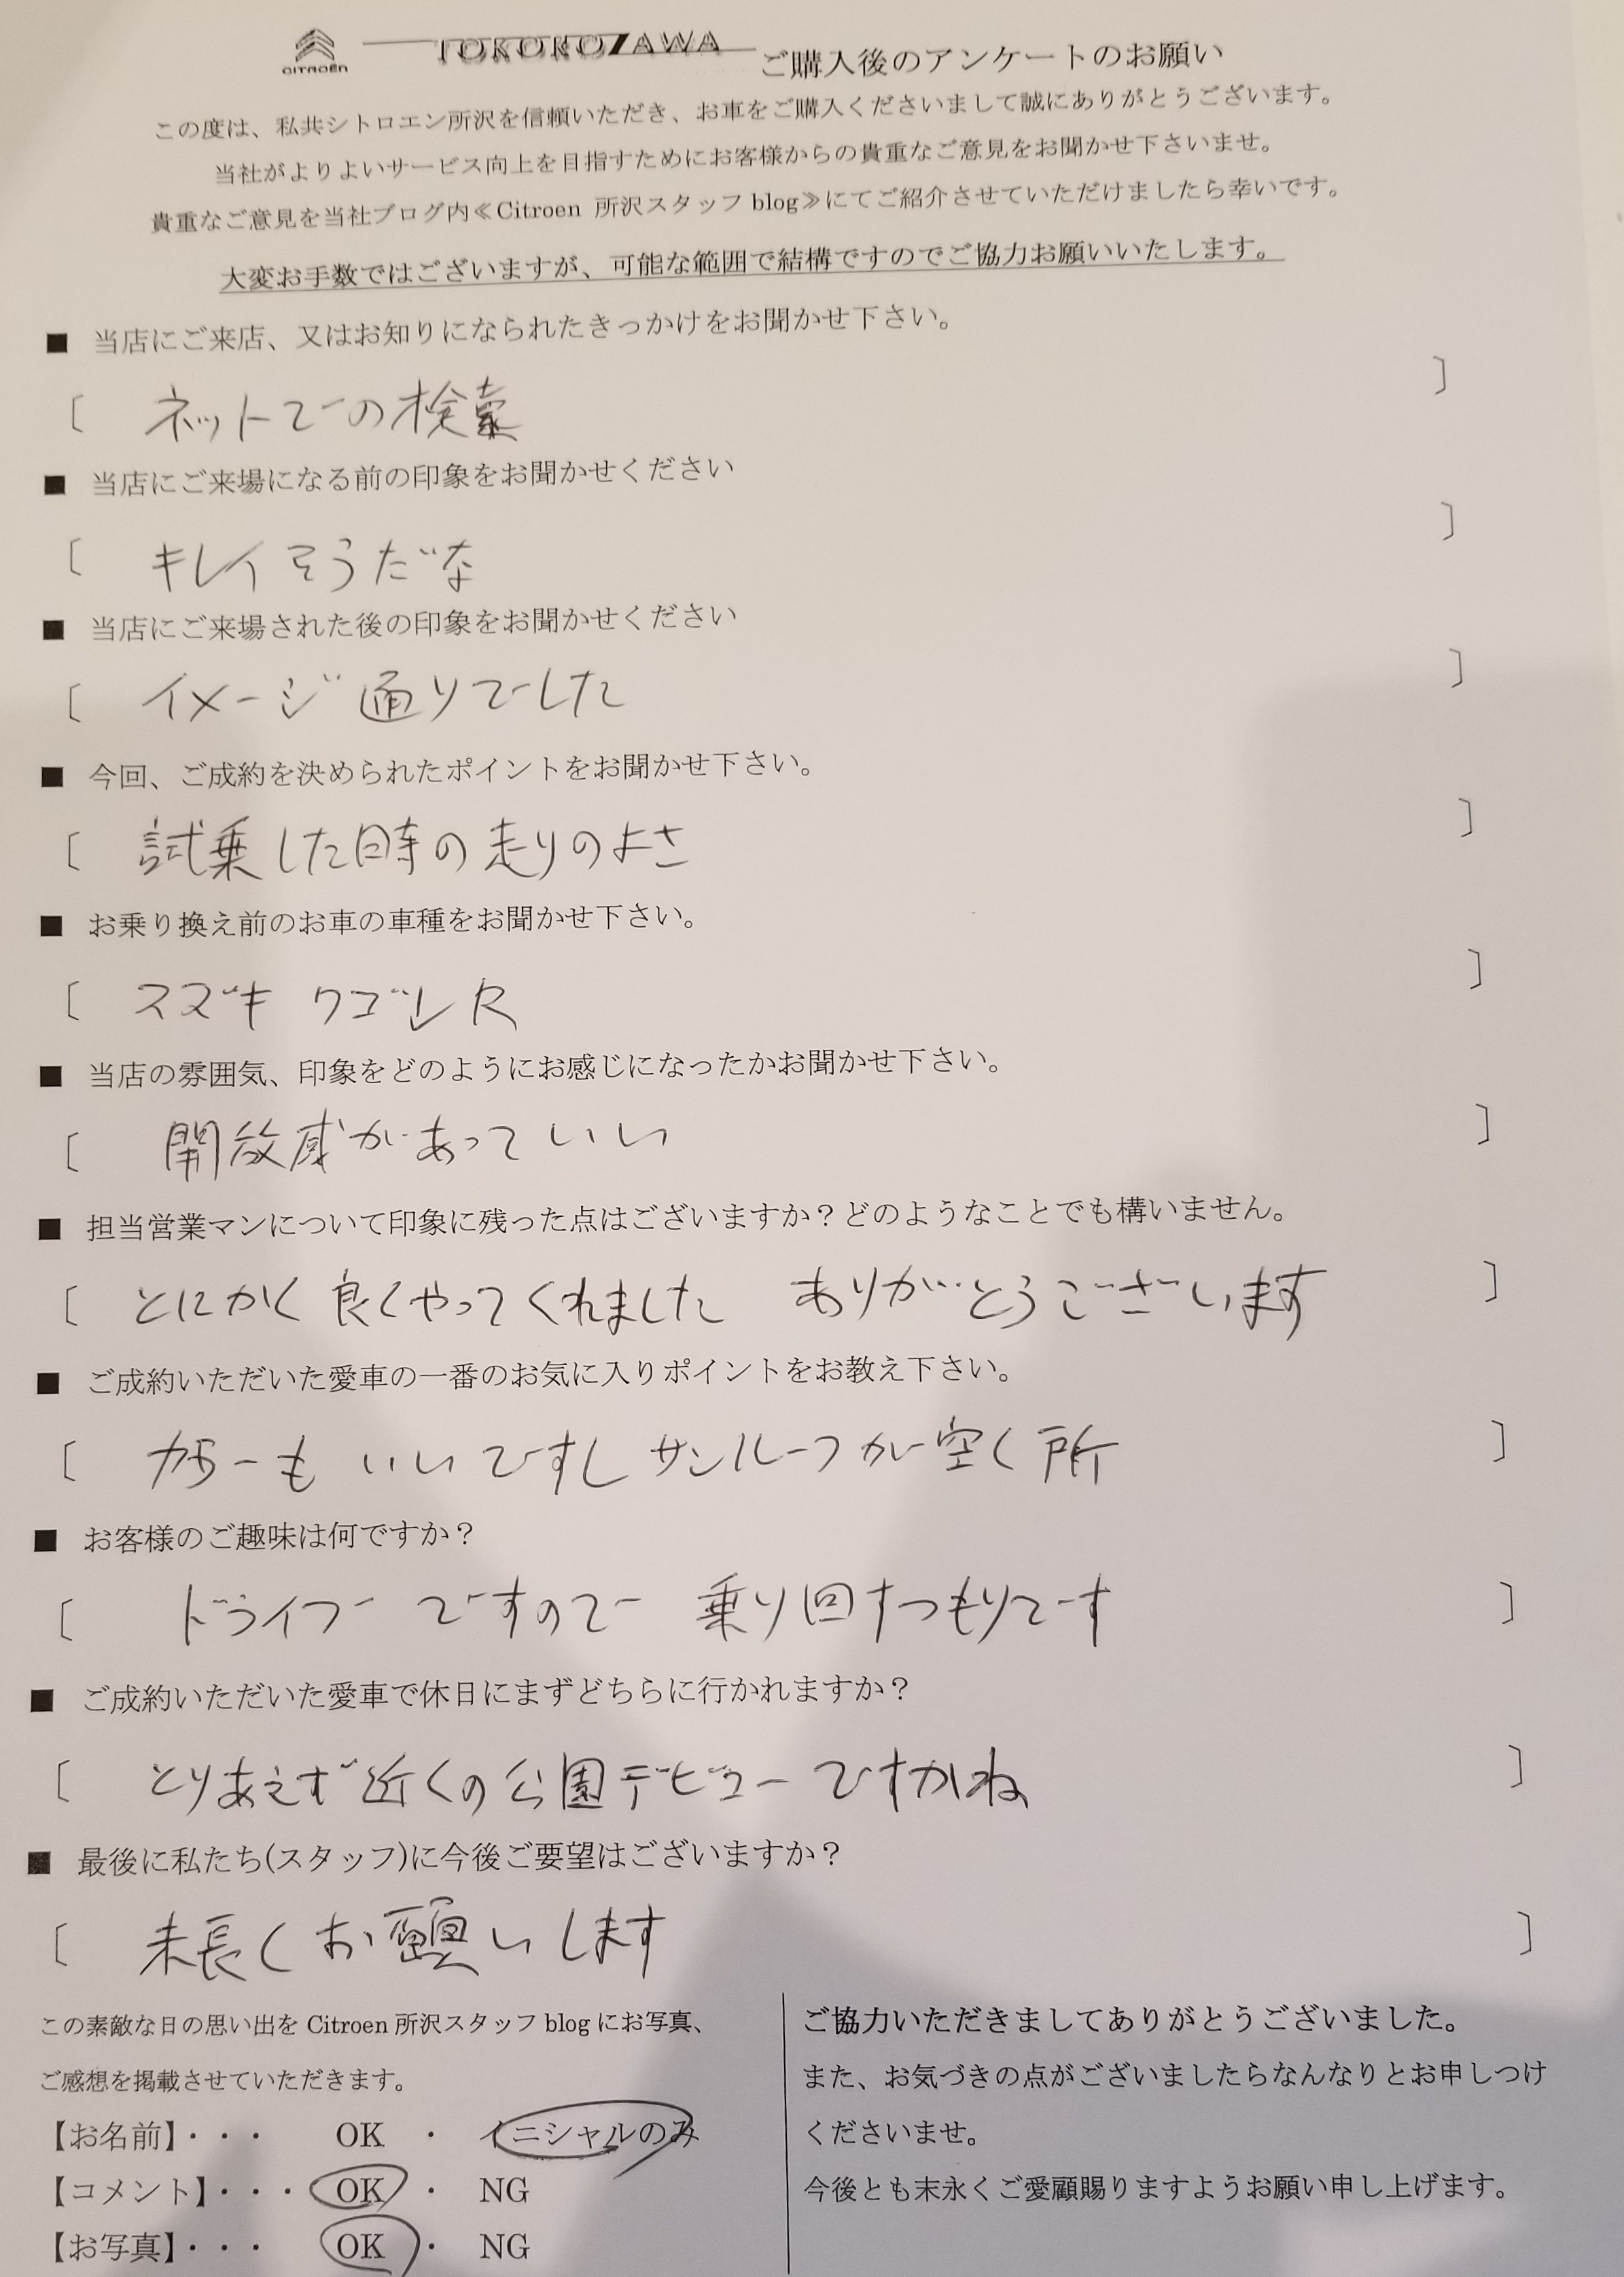 CITROËN TOKOROZAWA ご購入後のアンケートのお願い
この度は、私共シトロエン所沢を信頼いただき、お車をご購入くださいまして誠にありがとうございます。
当社がよりよいサービス向上を目指すためにお客様からの貴重なご意見をお聞かせ下さいませ。
貴重なご意見を当社ブログ内≪Citroen 所沢スタッフ blog≫にてご紹介させていただけましたら幸いです。
大変お手数ではございますが、可能な範囲で結構ですのでご協力お願いいたします。
■ 当店にご来店、又はお知りになられたきっかけをお聞かせ下さい。
〔 ネットでの検索 〕
■ 当店にご来場になる前の印象をお聞かせください
〔 キレイそうだな 〕
■ 当店にご来場された後の印象をお聞かせください
〔 イメージ通りでした 〕
■ 今回、ご成約を決められたポイントをお聞かせ下さい。
〔 試乗した時の走りのよさ 〕
■ お乗り換え前のお車の車種をお聞かせ下さい。
〔 スズキ ワゴンR 〕
■ 当店の雰囲気、印象をどのようにお感じになったかお聞かせ下さい。
〔 開放感があっていい 〕
■ 担当営業マンについて印象に残った点はございますか？どのようなことでも構いません。
〔 とにかく良くやってくれました ありがとうございます 〕
■ ご成約いただいた愛車の一番のお気に入りポイントをお教え下さい。
〔 カラーも いいですし サンルーフが空く所 〕
■ お客様のご趣味は何ですか？
〔 ドライブですので 乗り回すつもりです 〕
■ ご成約いただいた愛車で休日にまずどちらに行かれますか？
〔 とりあえず近くの公園デビューですかね 〕
■ 最後に私たち(スタッフ)に今後ご要望はございますか？
〔 末長くお願いします 〕
この素敵な日の思い出を Citroen 所沢スタッフ blog にお写真、
ご感想を掲載させていただきます。
【お名前】・・・ OK ・ イニシャルのみ
【コメント】・・・ OK ・ NG
【お写真】・・・ OK ・ NG
ご協力いただきましてありがとうございました。
また、お気づきの点がございましたらなんなりとお申しつけ
くださいませ。
今後とも末永くご愛顧賜りますようお願い申し上げます。